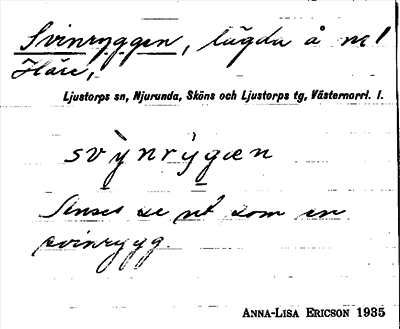 Svinryggen, lägda å nr 1
Häre,
Ljustorps sn, Njurunda, Sköns och Ljustorps tg, Västernorrl. l.
svỳnrỳgæn
Senses se ut som en
svinrygg.
ANNA-LISA ERICSON 1935